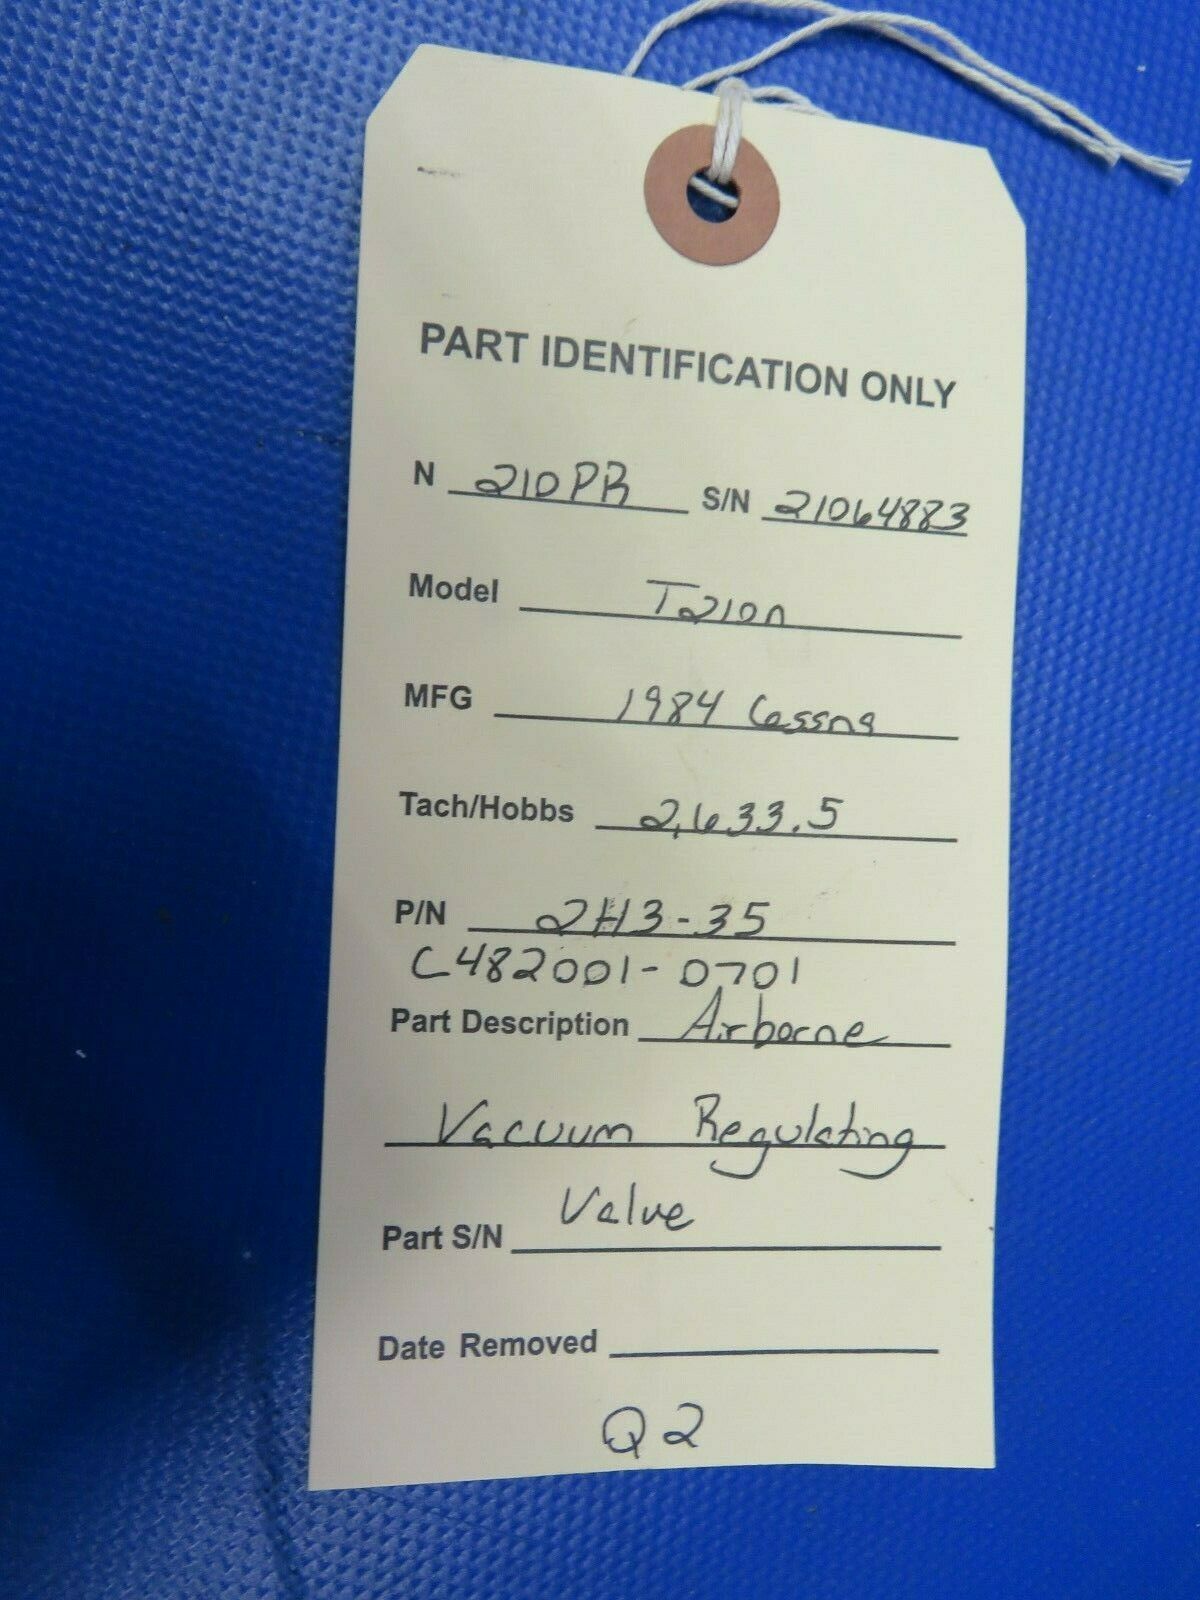 PART IDENTIFICATION ONLY
N 210PR S/N 21064883
Model T210n
MFG 1984 Cessna
Tach/Hobbs 2,633.5
P/N 2H3-35
C482001-0701
Part Description Airborne
Vacuum Regulating
Valve
Part S/N
Date Removed
Q2